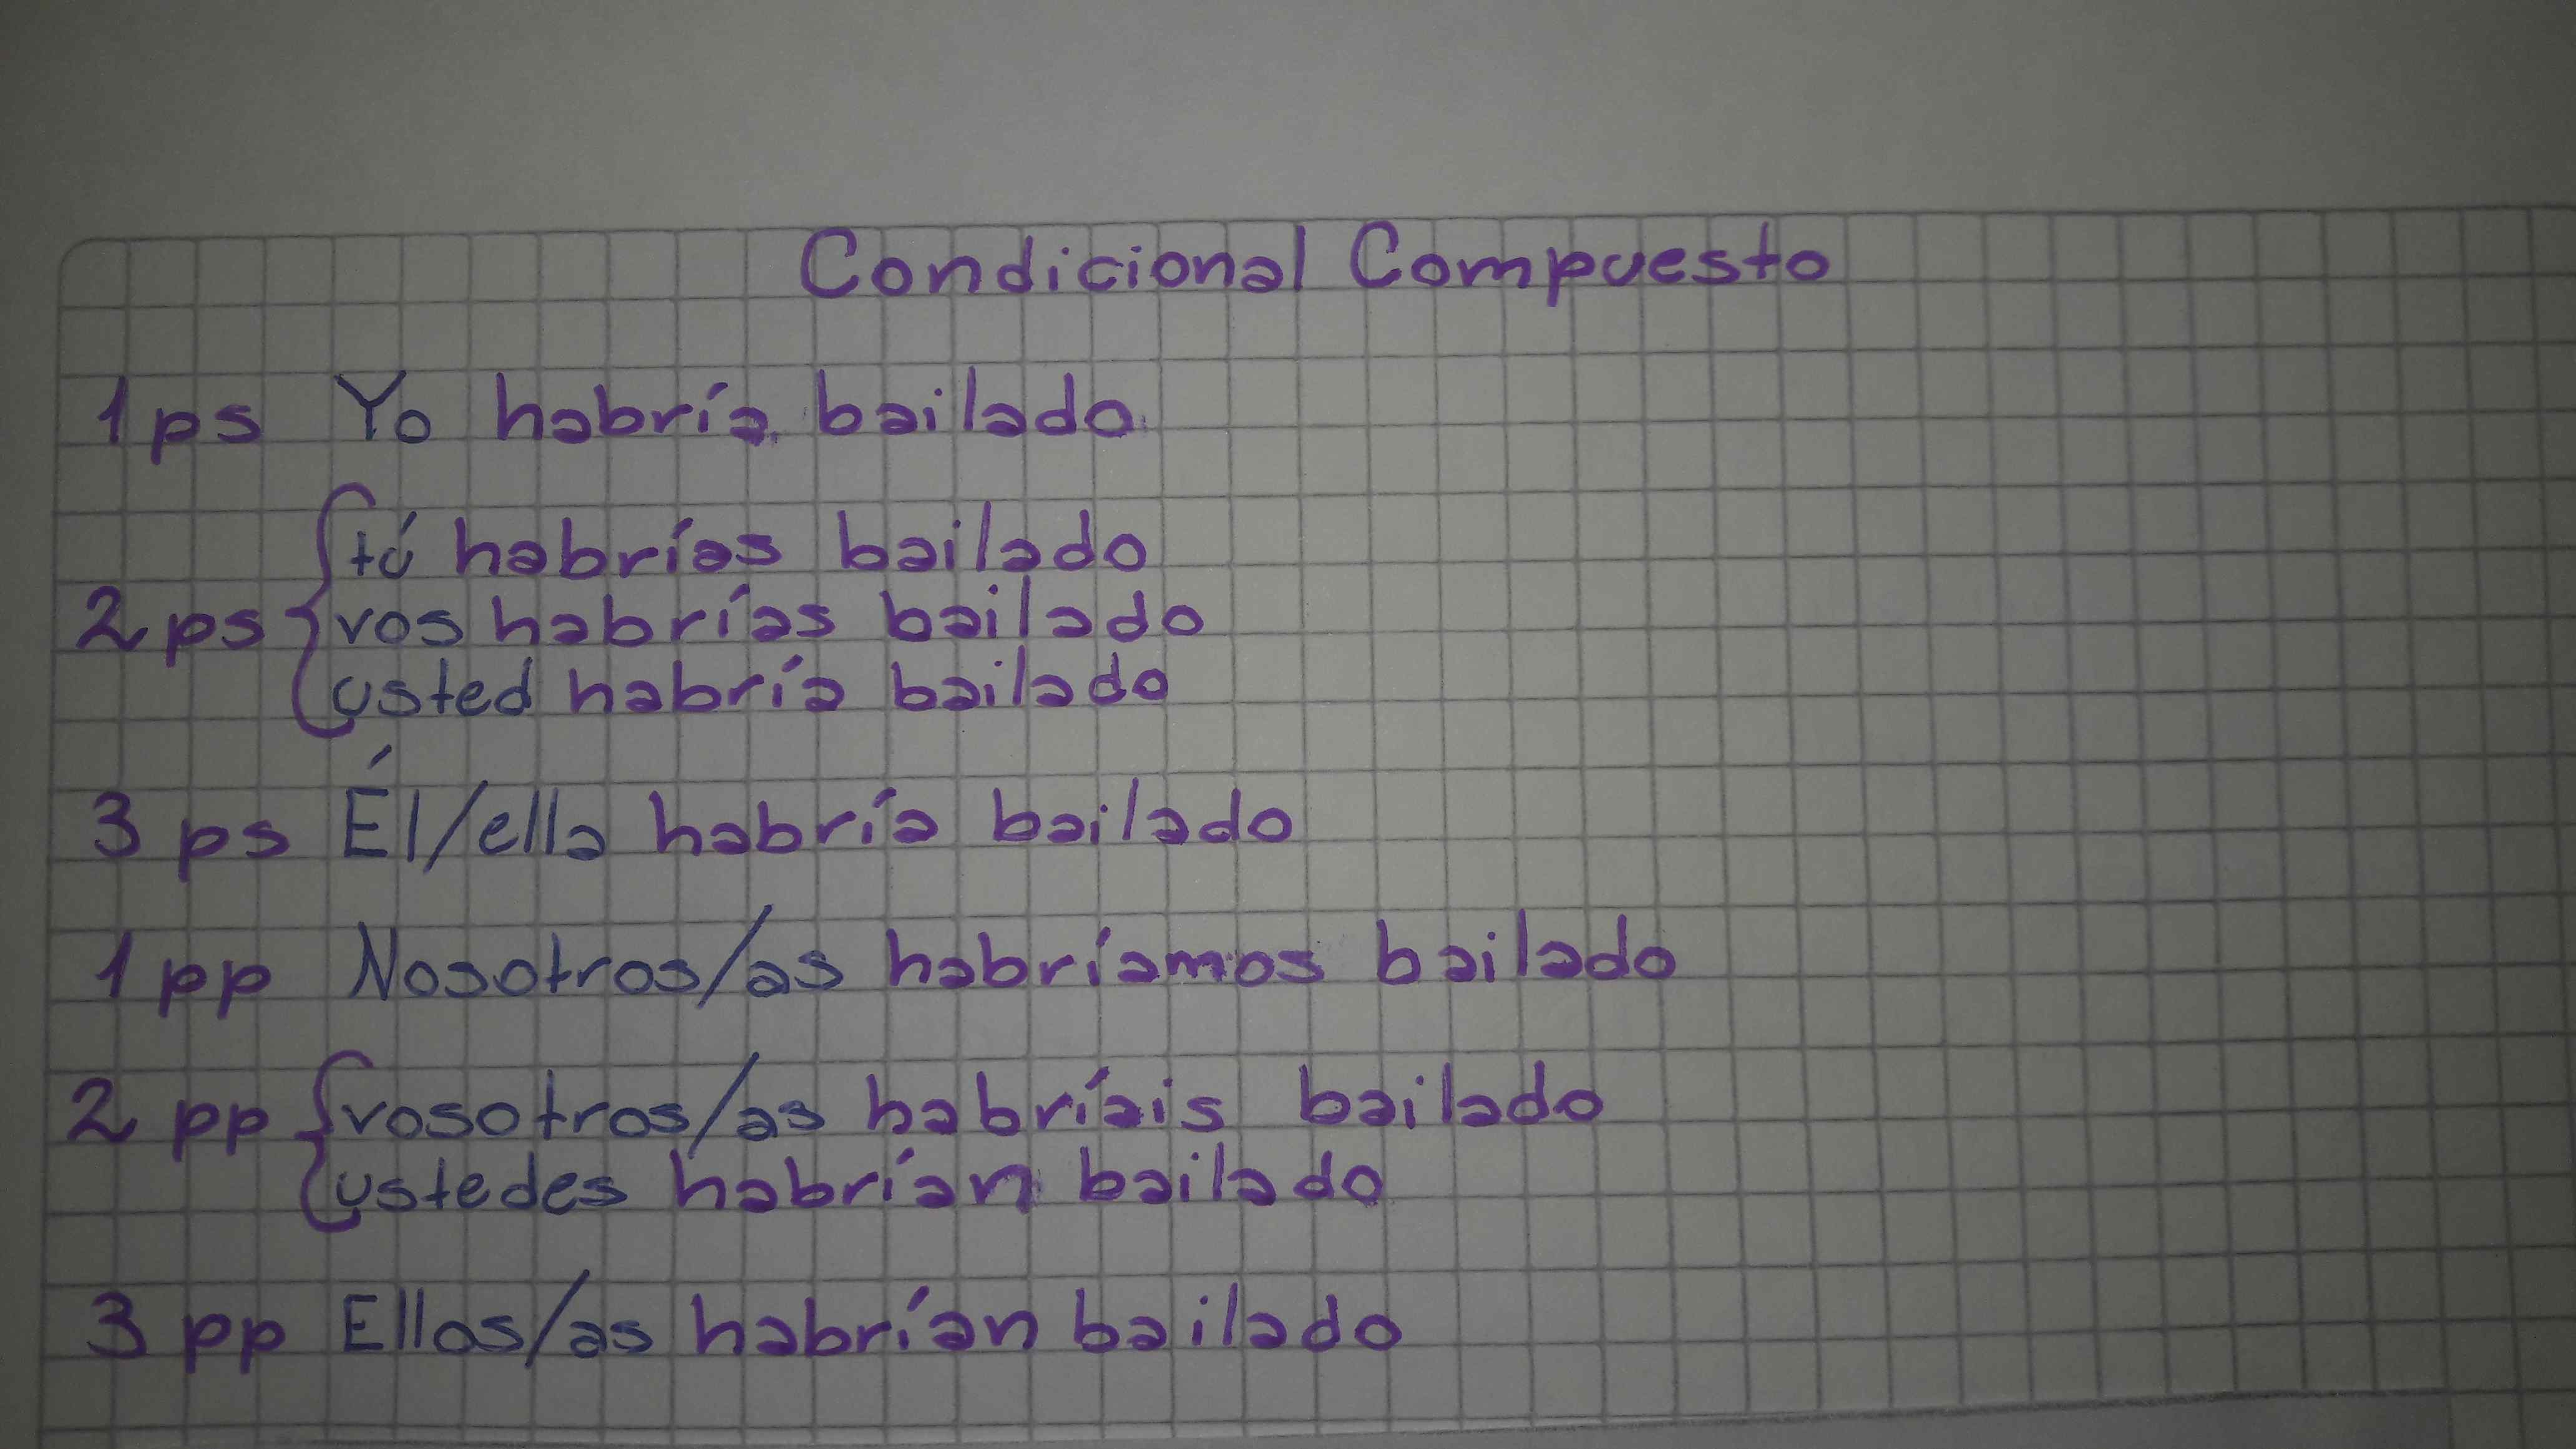 Condicional Compuesto
1 ps Yo habría bailado
tú habrías bailado
2 ps vos habrías bailado
usted habría bailado
3 ps Él/ella habría bailado
1 pp Nosotros/as habríamos bailado
2 pp vosotros/as habríais bailado
ustedes habrían bailado
3 pp Ellos/as habrían bailado